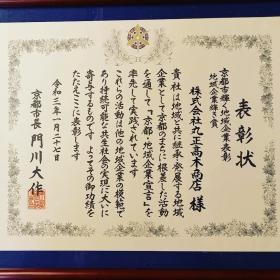 表彰状
京都市輝く地域企業表彰
地域企業輝き賞
株式会社丸正高木商店 様
貴社は地域と共に継承・発展する地域
企業として京都のまちに根差した活動
を通して「京都・地域企業宣言」を
率先して実践されています
これらの活動は他の地域企業の模範で
あり持続可能な共生社会の実現に大いに
寄与するものです よってその御功績を
たたえここに表彰します
令和三年一月二十七日
京都市長 門川大作